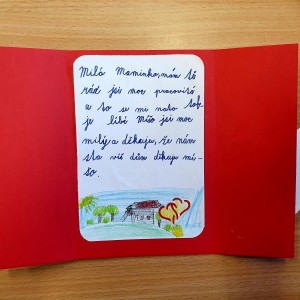 Milá Maminko, mám tě
rád jsi moc pracovitá
a to se mi nato tobě
je libí Mišo jsi moc
milý a děkuju, že nám
sta víš dům děkuju mi-
šo.